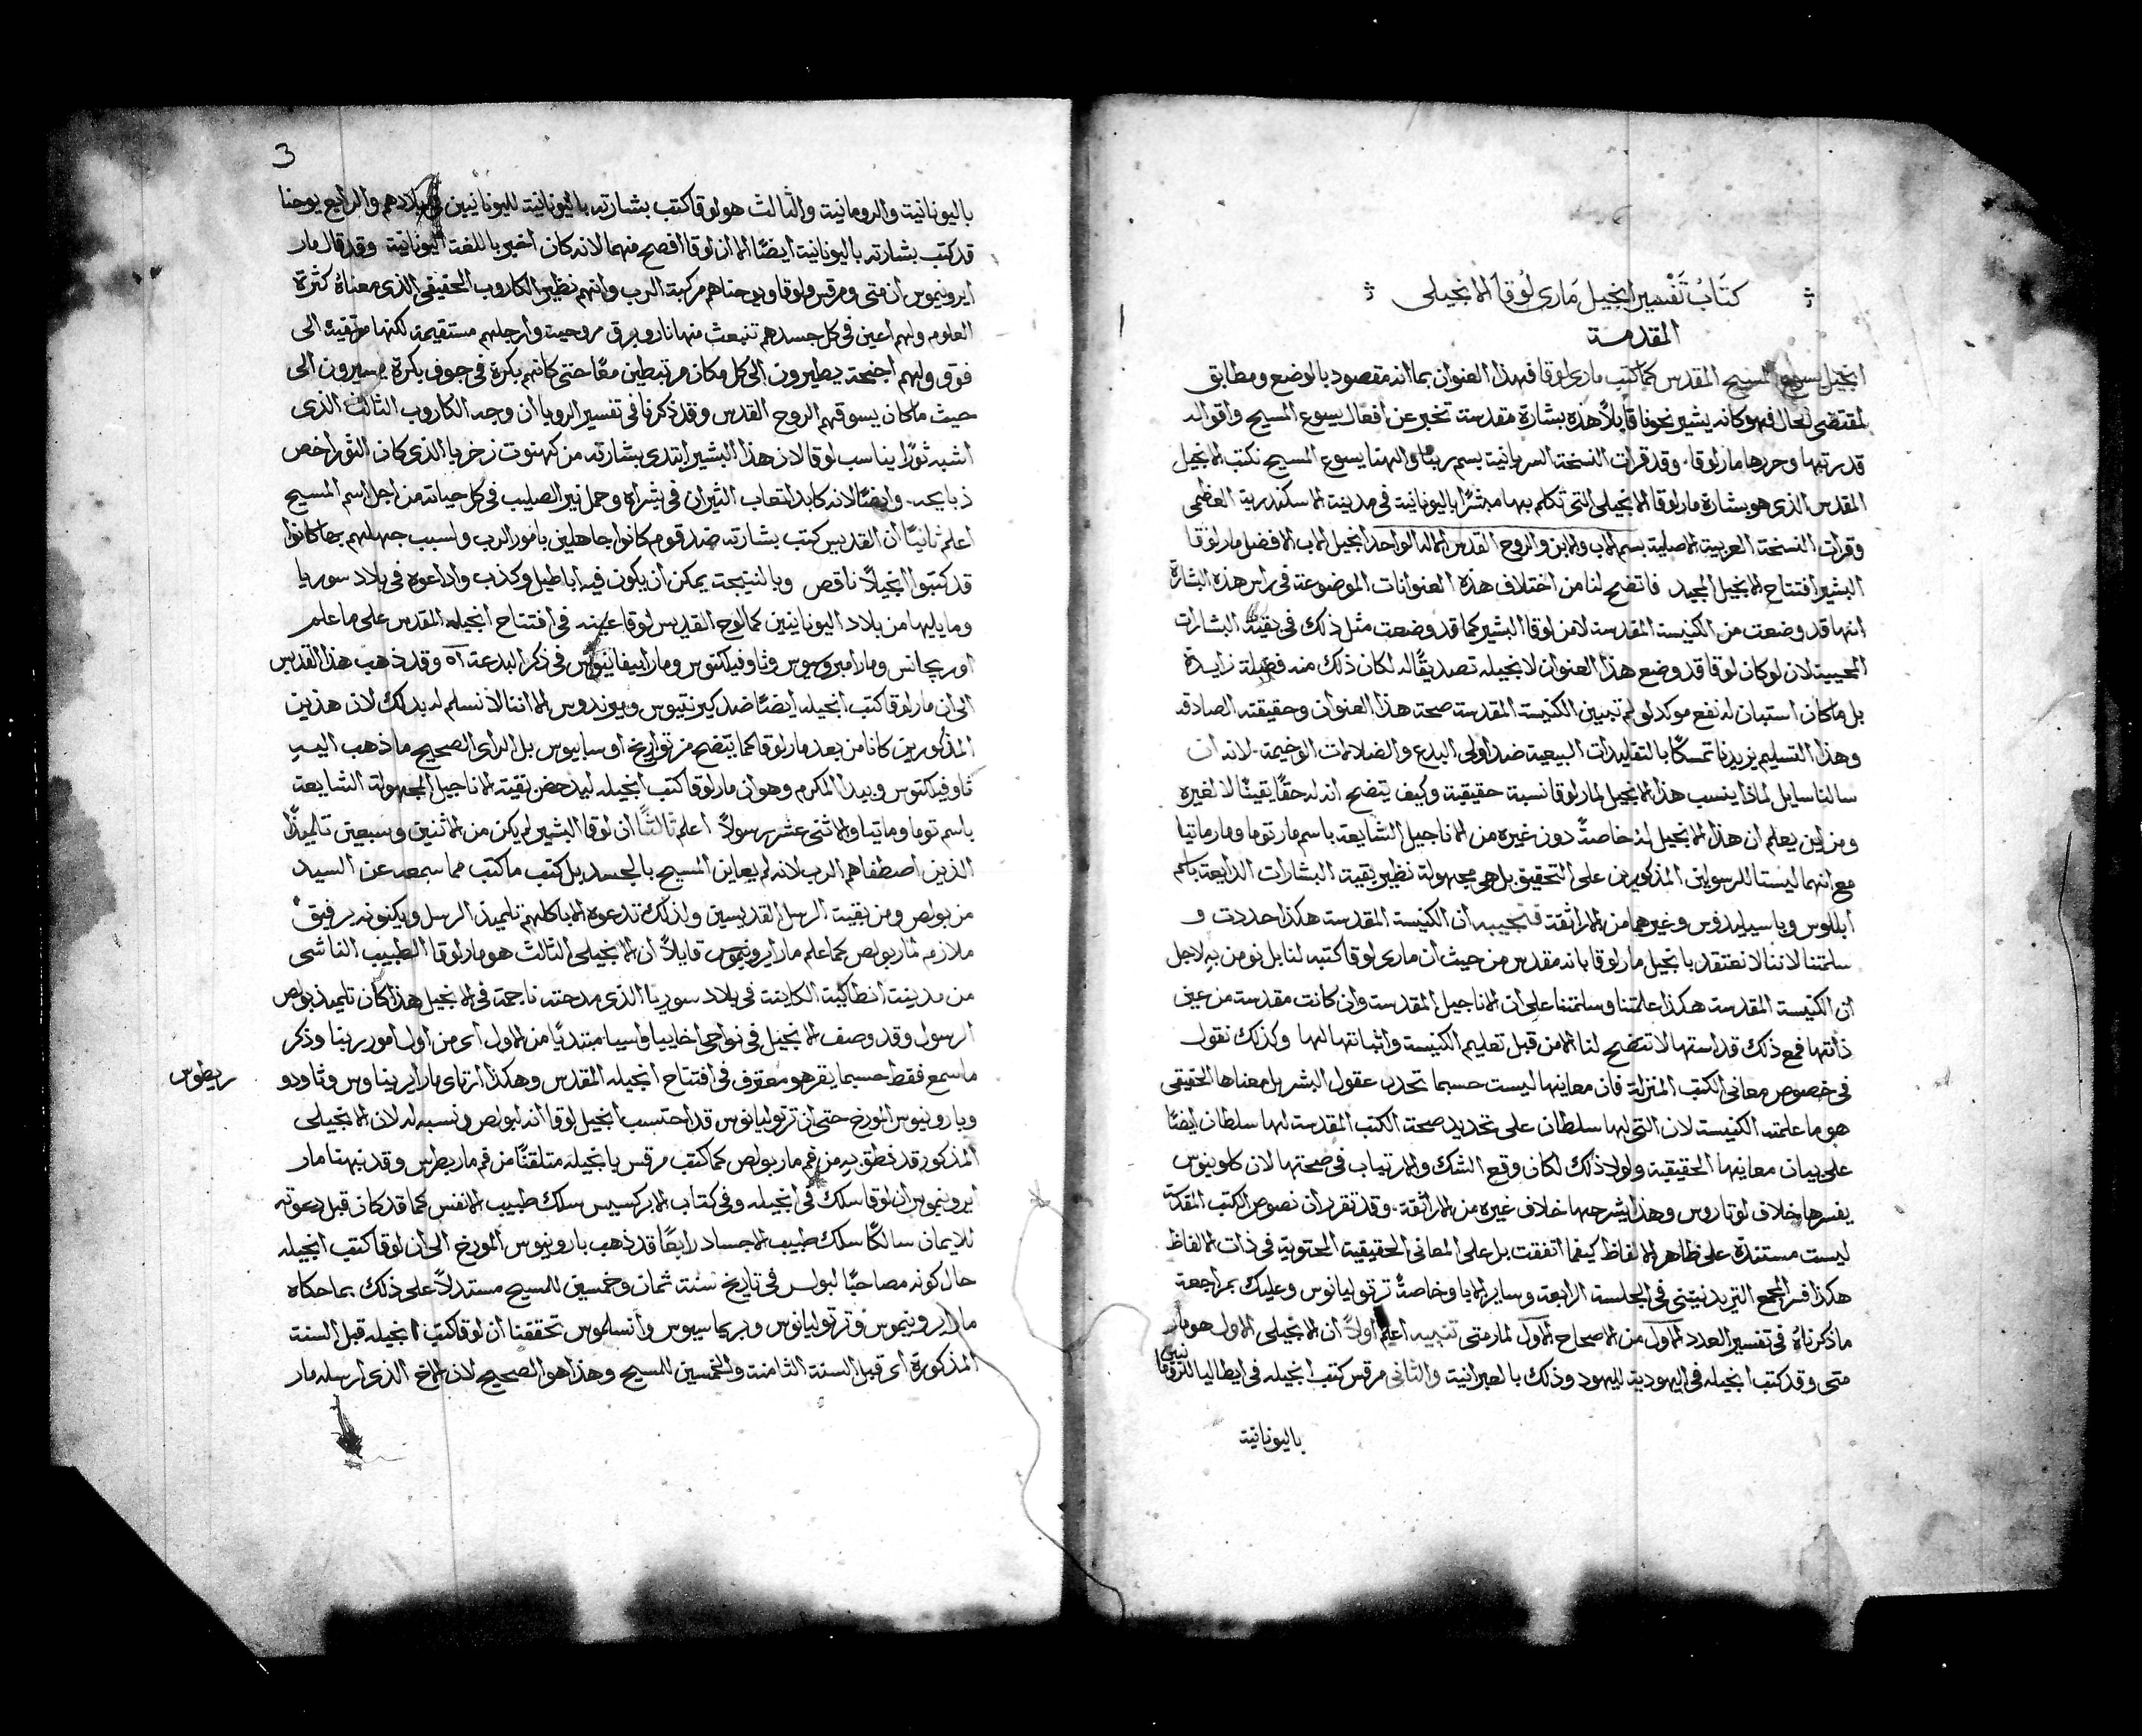 كتَابُ تَفْسِير انجيل مَارى لُوقا الانجيلى
المقدمة
انجيل يسوع المسيح المقدس كما كتب مارى لوقا فهذا العنوان بما انه مقصود بالوضع ومطابق
لمقتضى الحال فهو كانه يشير نحونا قايلاً هذه بشارة مقدسة تخبر عن افعال يسوع المسيح واقواله
قد رتبها وحررها مار لوقا. وقد قرات النسخة السريانية بسم ربنا والهنا يسوع المسيح نكتب الانجيل
المقدس الذى هو بشارة مار لوقا الانجيلى التى تكلم بها مبشرًا باليونانية فى مدينة الاسكندرية العظمى
وقرات النسخة العربية الاصلية بسم الاب والابن والروح القدس الاله الواحد انجيل الاب الافضل مار لوقا
البشير افتتاح الانجيل المجيد فاتضح لنا من اختلاف هذه العنوانات الموضوعة فى راس هذه البشارة
انها قد وضعت من الكنيسة المقدسة لا من لوقا البشير كما قد وضعت مثل ذلك فى بقية البشارات
المحيية لان لو كان لوقا قد وضع هذا العنوان لانجيله تصديقًا له لكان ذلك منه فضلة زايدة
بل ما كان استبان له نفع موكد لو لم تبين الكنيسة المقدسة صحة هذا العنوان وحقيقته الصادقه
وهذا التسليم يزيدنا تمسكًا بالتقليدات البيعية ضد اولى البدع والضلالات الوخيمة. لانه ان
سالنا سايل لماذا ينسب هذا الانجيل لمار لوقا نسبة حقيقية وكيف يتضح انه له حقًا يقينًا لا لغيره
ومن اين يعلم ان هذا الانجيل له خاصتً دون غيره من الاناجيل الشايعة باسم مار توما ومار ماتيا
مع انهما ليستا للرسولين المذكورين على التحقيق بل هى مجهولة نظير بقية البشارات الذايعة باسم
ابللوس وباسيليدوس وغيرهما من الاراثقة فنجيبه ان الكنيسة المقدسة هكذا حددت و
سلمتنا لاننا لا نعتقد بانجيل مار لوقا بانه مقدس من حيث ان مارى لوقا كتبه لنا بل نومن به لاجل
ان الكنيسة المقدسة هكذا علمتنا وسلمتنا على ان الاناجيل المقدسة وان كانت مقدسة من عين
ذاتها فمع ذلك قداستها لا تتضح لنا الا من قبل تعليم الكنيسة واثباتها لها وكذلك نقول
فى خصوص معانى الكتب المنزلة فان معانيها ليست حسبما تحدد عقول البشر بل معناها الحقيقى
هو ما علمته الكنيسة لان التى لها سلطان على تحديد صحة الكتب المقدسة لها سلطان ايضًا
على بيان معانيها الحقيقية ولولا ذلك لكان وقع الشك والارتياب فى صحتها لان كلوينوس
يفسرها خلاف لوتاروس وهذا يشرحها خلاف غيره من الاراثقة. وقد تقرر ان نصوص الكتب المقدسة
ليست مستندة على ظاهر الالفاظ كيفما اتفقت بل على المعانى الحقيقية المحتوية فى ذات الالفاظ
هكذا فسر المجمع التريدنتينى فى الجلسة الرابعة وساير الابا وخاصتً ترتوليانوس وعليك بمراجعة
ما ذكرناه فى تفسير العدد الاول من الاصحاح الاول لمار متى تنبيه اعلم اولاً ان الانجيلى الاول هو مار
متى وقد كتب انجيله فى اليهودية لليهود وذلك بالعبرانية والثانى مرقس كتب انجيله فى ايطاليا للرومانيين
باليونانية
3
باليونانية والرومانية والثالث هو لوقا كتب بشارته باليونانية لليونانيين فى بلادهم والرابع يوحنا
قد كتب بشارته باليونانية ايضًا الا ان لوقا افصح منهما لانه كان اخبر باللغة اليونانية وقد قال مار
ايرونيموس ان متى ومرقس ولوقا ويوحنا هم مركبة الرب وانهم نظير الكاروب الحقيقى الذى معناه كثرة
العلوم ولهم اعين فى كل جسدهم تنبعث منها نار وبرق روحية وارجلهم مستقيمة لكنها مرتقية الى
فوق ولهم اجنحة يطيرون الى كل مكان مرتبطين معًا حتى كانهم بكرة فى جوف بكرة يسيرون الى
حيث ما كان يسوقهم الروح القدس وقد ذكرنا فى تفسير الرويا ان وجه الكاروب الثالث الذى
اشبه ثورًا يناسب لوقا لان هذا البشير ابتدى بشارته من كهنوت زخريا الذى كان الثور اخص
ذبايحه. وايضًا لانه كابد اتعاب الثيران فى بشراه وحمل نير الصليب فى كل حياته من اجل اسم المسيح
اعلم ثانيًا ان القديس كتب بشارته ضد قوم كانوا جاهلين بامور الرب ولسبب جهلهم بها كانوا
قد كتبوا انجيلاً ناقص وبالنتيجة يمكن ان يكون فيه اباطيل وكذب واذاعوه فى بلاد سوريا
وما يليها من بلاد اليونانيين كما لوح القديس لوقا عينه فى افتتاح انجيله المقدس على ما علم
اوريجانس ومار امبروسيوس وثاوفيلكتوس ومار ابيفانيوس فى ذكر البدعة اه وقد ذهب هذا القديس
الى ان مار لوقا كتب انجيله ايضًا ضد كيرنتيوس وميرندوس الا اننا لا نسلم له بذلك لان هذين
المذكورين كانا من بعد مار لوقا كما يتضح من تواريخ اوسابيوس بل الراى الصحيح ما ذهب اليه
ثاوفيلكتوس وبيدا المكرم وهو ان مار لوقا كتب انجيله ليدحض بقية الاناجيل المجهولة الشايعة
باسم توما وماتيا والاثنى عشر رسولاً اعلم ثالثًا ان لوقا البشير لم يكن من الاثنين وسبعين تلميذًا
الذين اصطفاهم الرب لانه لم يعاين المسيح بالجسد بل كتب ما كتب مما سمعه عن السيد
من بولص ومن بقية الرسل القديسين ولذلك تدعوه الابا كلهم تلميذ الرسل ويكنونه برفيق
ملازم لمار بولص كما علم مار ايرونيموس قايلاً ان الانجيلى الثالث هو مار لوقا الطبيب الناشى
من مدينة انطاكية الكاينة فى بلاد سوريا الذى مدحته ناجمة فى الانجيل هذا كان تلميذ بولص
الرسول وقد وصف الانجيل فى نواحى اخاييا واسيا مبتديًا من الاول اى من اول امور ربنا وذكر
ما سمع فقط حسبما يقر هو معترف فى افتتاح انجيله المقدس وهكذا ارتاى مار ايريناوس وثاودو
ريطوس
وبارونيوس المورخ حتى ان ترتوليانوس قد احتسب انجيل لوقا انه لبولص ونسبه له لان الانجيلى
المذكور قد نطق به من فم مار بولص كما كتب مرقس بانجيله متلقنًا من فم مار بطرس وقد نبهنا مار
ايرونيموس ان لوقا سلك فى انجيله وفى كتاب الابركسيس سلك طبيب الانفس كما قد كان قبل دعوته
للايمان سالكًا سلك طبيب الاجساد رابعًا قد ذهب بارونيوس المورخ الى ان لوقا كتب انجيله
حال كونه مصاحبًا لبولس فى تاريخ سنة ثمان وخمسين للمسيح مستدلاً على ذلك بما حكاه
مار ايرونيموس وترتوليانوس وبريماسيوس وانسلموس تحققنا ان لوقا كتب انجيله قبل السنة
المذكورة اى قبل السنة الثامنة والخمسين للمسيح وهذا هو الصحيح لان الاخ الذى ارسله مار